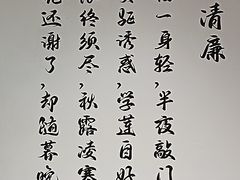 清廉
一身轻,半夜敲门
诱惑,学莲自好
终须尽,秋露凌寒
还谢了,却随暮晚